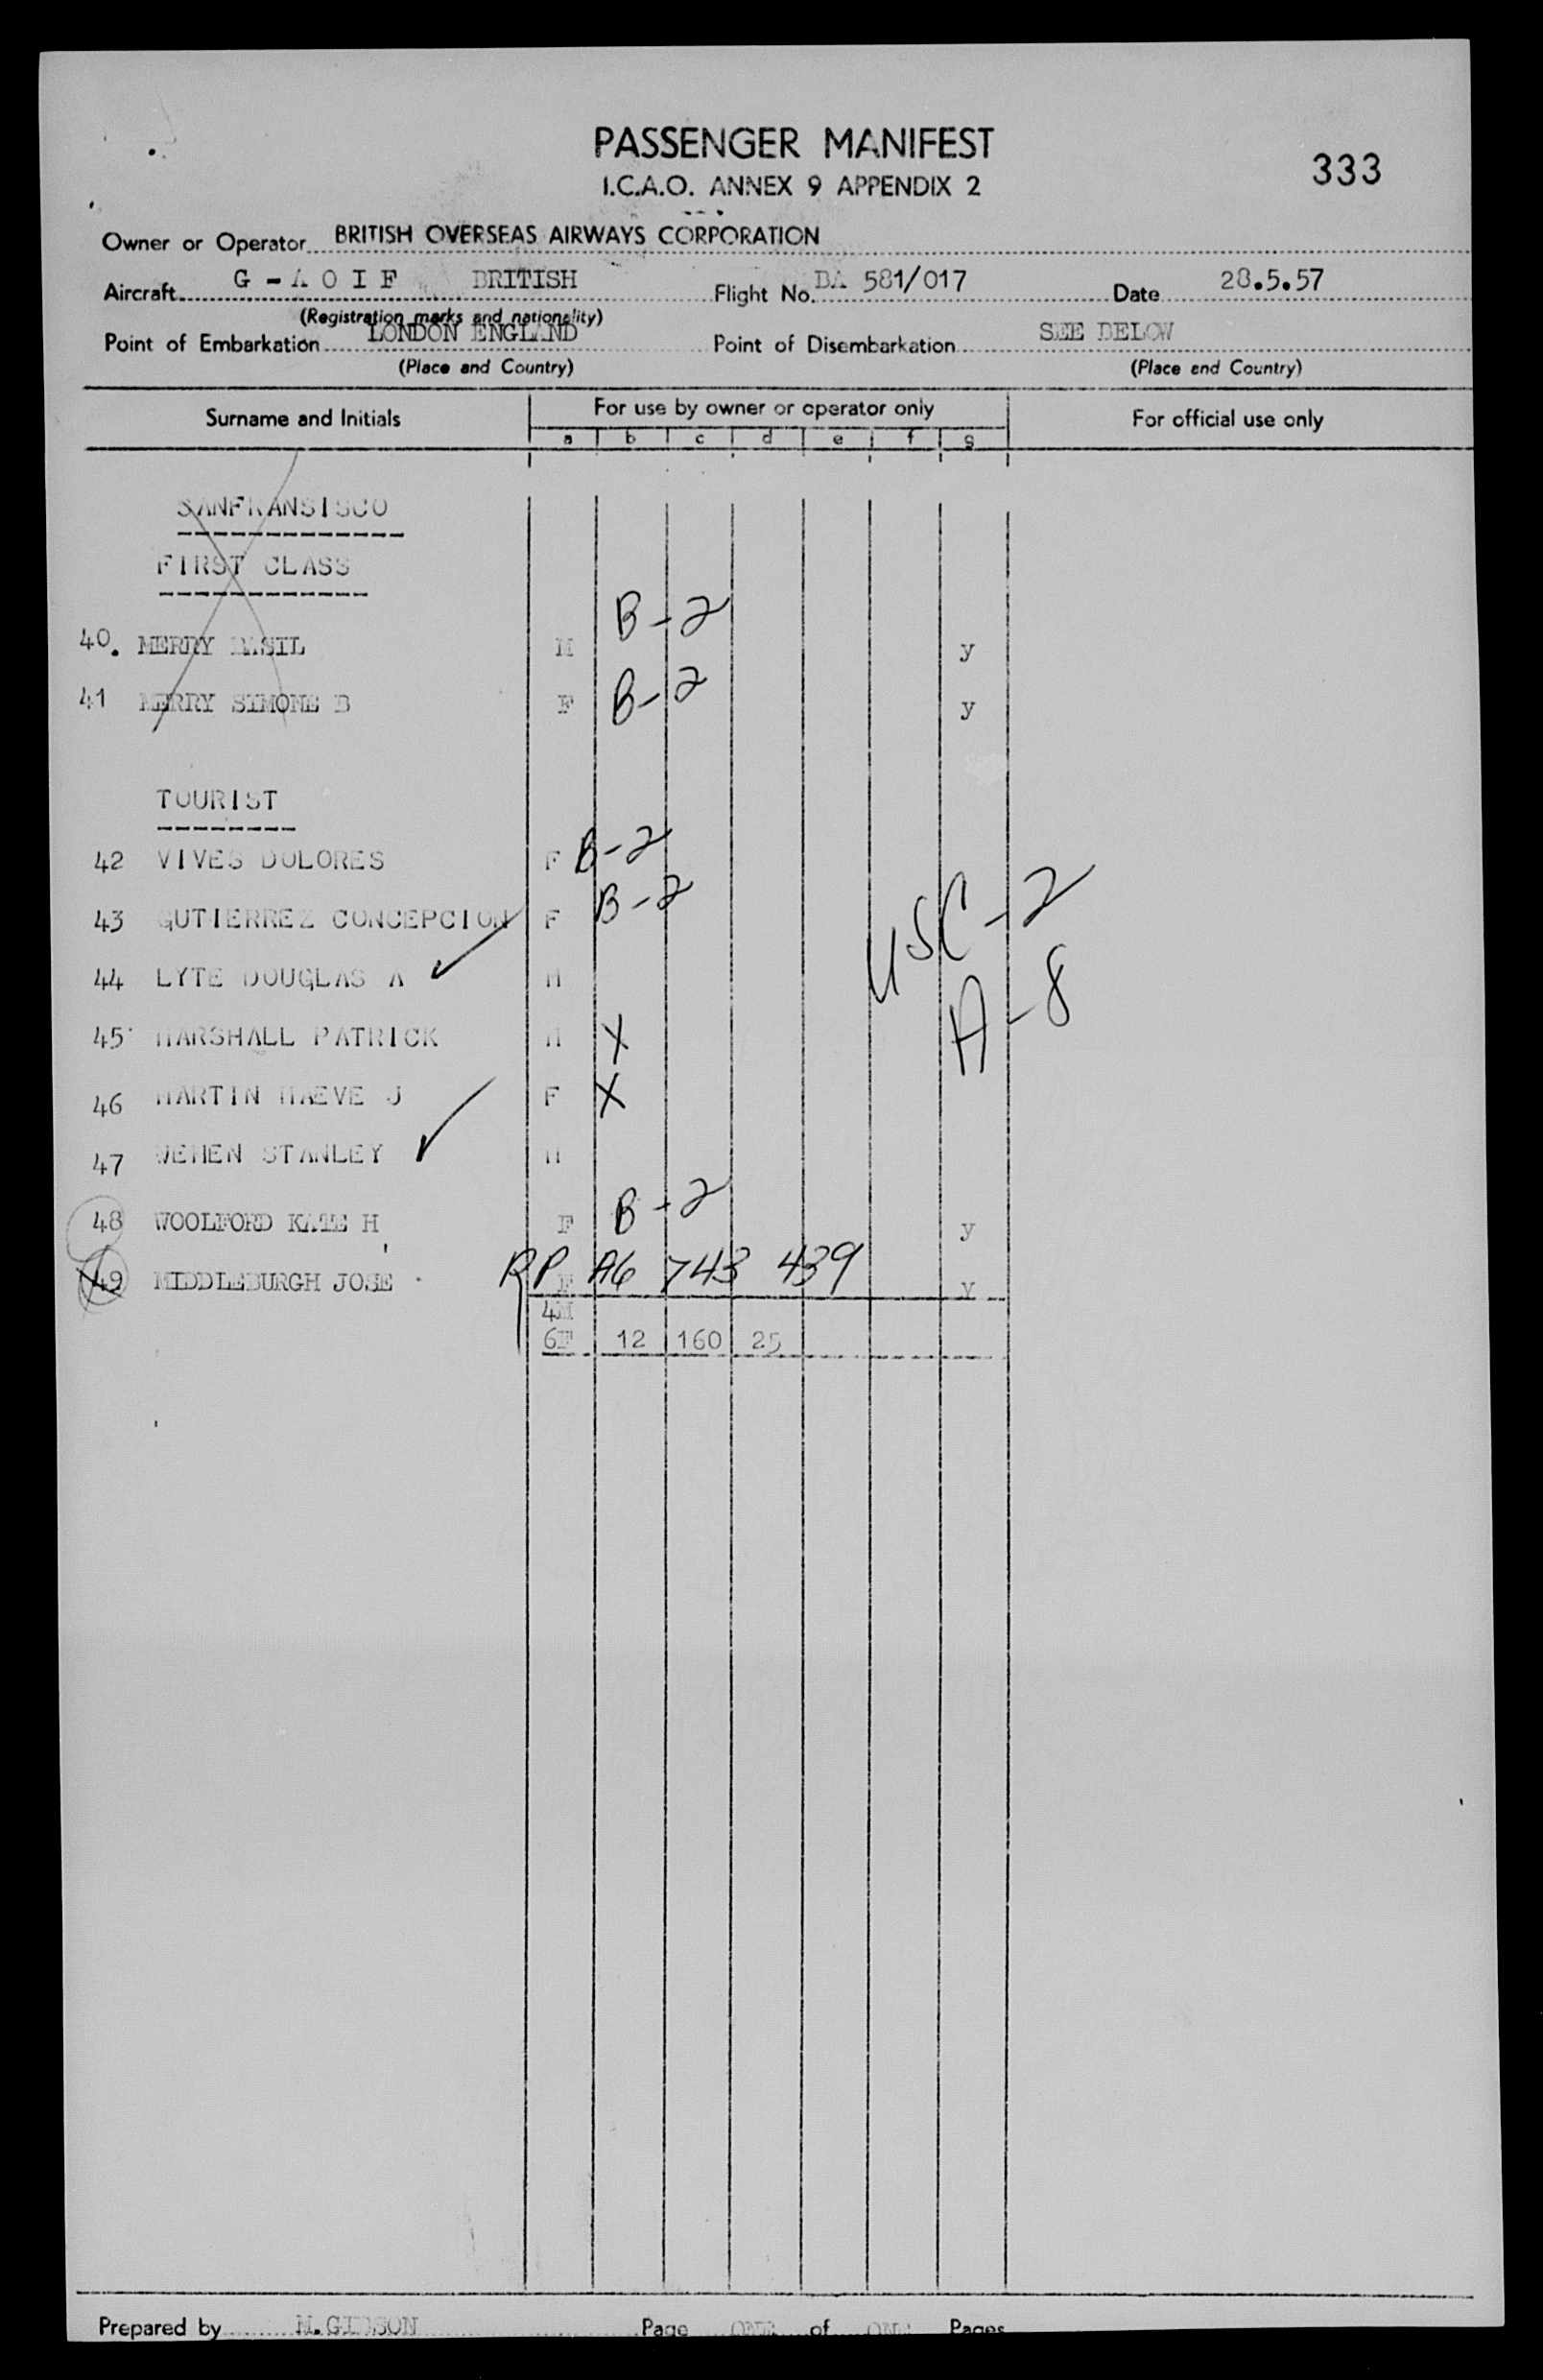 PASSENGER MANIFEST
I.C.A.O. ANNEX 9 APPENDIX 2
333
Owner or Operator BRITISH OVERSEAS AIRWAYS CORPORATION
Aircraft G - A O I F BRITISH Flight No. BA 581/017 Date 28.5.57
(Registration marks and nationality)
Point of Embarkation LONDON ENGLAND Point of Disembarkation SEE BELOW
(Place and Country) (Place and Country)
Surname and Initials For use by owner or operator only For official use only
a b c d e f g
SANFRANSISCO
FIRST CLASS
40. MERRY BASIL M B-2 y
41 MERRY SIMONE B F B-2 y
TOURIST
42 VIVES DOLORES F B-2
43 GUTIERREZ CONCEPCION F B-2 USC-2
44 LYTE DOUGLAS A ✓ M A-8
45 MARSHALL PATRICK M X
46 MARTIN MAEVE J F X
47 WEHEN STANLEY ✓ M
48 WOOLFORD KATE H F B-2 y
49 MIDDLEBURGH JOSE F RP A6 743 439 y
4M
6F 12 160 25
Prepared by M.GIBSON Page ONE of ONE Pages